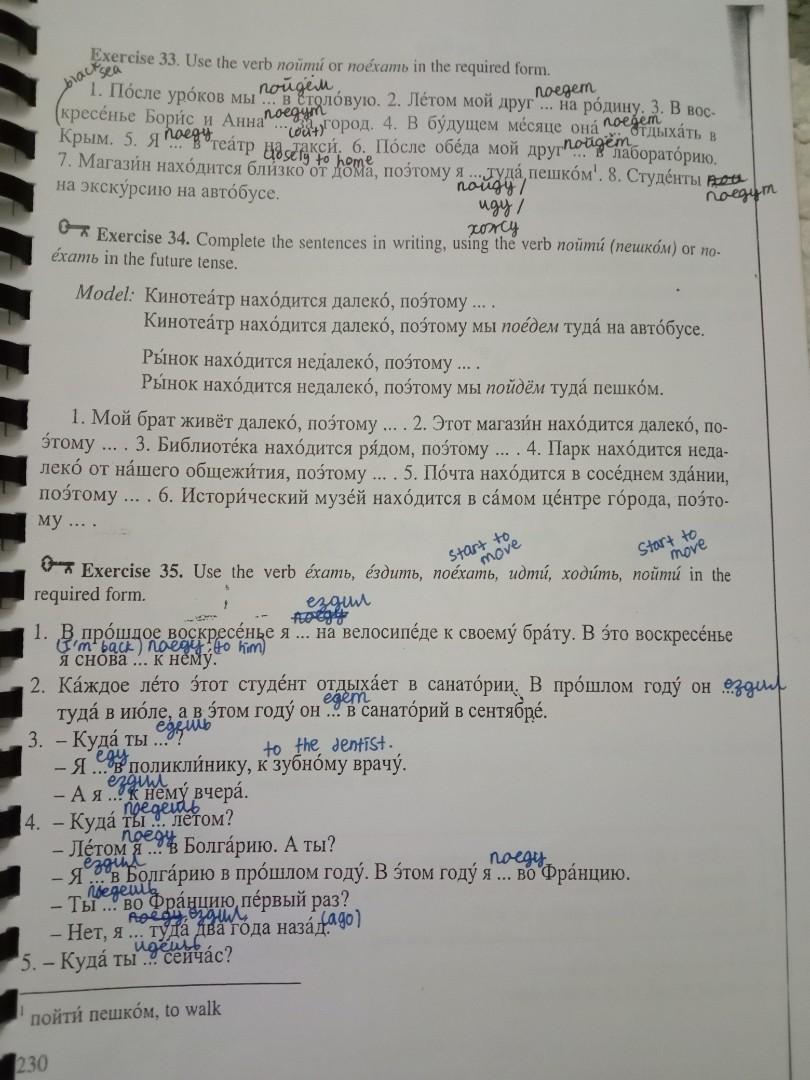 Exercise 33. Use the verb пойти́ or пое́хать in the required form.
black sea пойдём поедет
1. По́сле уро́ков мы ... в столо́вую. 2. Ле́том мой друг ... на ро́дину. 3. В вос-
поедут поедет
кресе́нье Бори́с и Анна ... за́ город. 4. В бу́дущем ме́сяце она́ ... отдыха́ть в
поеду (out) пойдёт
Крым. 5. Я ... в теа́тр на такси́. 6. По́сле обе́да мой друг ... в лаборато́рию.
closely to home
7. Магази́н нахо́дится бли́зко от до́ма, поэ́тому я ... туда́ пешко́м¹. 8. Студе́нты ...
пойду/ поедут
на экску́рсию на авто́бусе.
иду/
хожу
Exercise 34. Complete the sentences in writing, using the verb пойти́ (пешко́м) or по-
е́хать in the future tense.
Model: Кинотеа́тр нахо́дится далеко́, поэ́тому ... .
Кинотеа́тр нахо́дится далеко́, поэ́тому мы пое́дем туда́ на авто́бусе.
Ры́нок нахо́дится недалеко́, поэ́тому ... .
Ры́нок нахо́дится недалеко́, поэ́тому мы пойдём туда́ пешко́м.
1. Мой брат живёт далеко́, поэ́тому ... . 2. Этот магази́н нахо́дится далеко́, по-
э́тому ... . 3. Библиоте́ка нахо́дится ря́дом, поэ́тому ... . 4. Парк нахо́дится неда-
леко́ от на́шего общежи́тия, поэ́тому ... . 5. По́чта нахо́дится в сосе́днем зда́нии,
поэ́тому ... . 6. Истори́ческий музе́й нахо́дится в са́мом це́нтре го́рода, поэ́то-
му ... .
start to move start to move
Exercise 35. Use the verb е́хать, е́здить, пое́хать, идти́, ходи́ть, пойти́ in the
required form.
ездил
поеду
1. В про́шлое воскресе́нье я ... на велосипе́де к своему́ бра́ту. В э́то воскресе́нье
(I'm back) поеду (to him)
я сно́ва ... к нему́.
2. Ка́ждое ле́то э́тот студе́нт отдыха́ет в санато́рии. В про́шлом году́ он ... ездил
едет
туда́ в ию́ле, а в э́том году́ он ... в санато́рий в сентябре́.
едешь
3. – Куда́ ты ... ?
еду to the dentist.
– Я ... в поликли́нику, к зубно́му врачу́.
ездил
– А я ... к нему́ вчера́.
поедешь
4. – Куда́ ты ... ле́том?
поеду
– Ле́том я ... в Болга́рию. А ты?
ездил поеду
– Я ... в Болга́рию в про́шлом году́. В э́том году́ я ... во Фра́нцию.
поедешь
– Ты ... во Фра́нцию пе́рвый раз?
поеду ездил (ago)
– Нет, я ... туда́ два го́да наза́д.
идёшь
5. – Куда́ ты ... сейча́с?
¹ пойти́ пешко́м, to walk
230